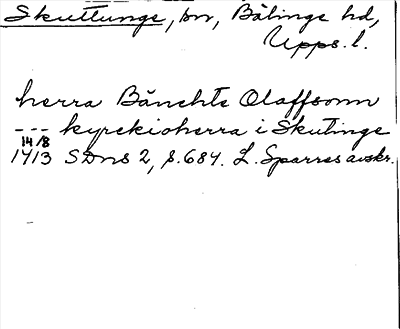 Skuttunge, sn, Bälinge hd,
Upps. l.
herra Bänchte Olaffsonn
--- kyrkioherra i Skutinge
14/8
1413 SDns 2, s. 684. L. Sparres avskr.